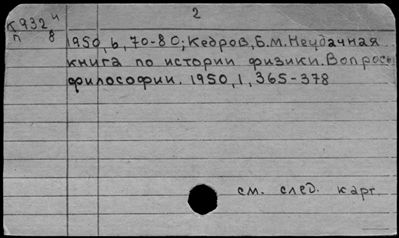 2
К932 и
п 8
1950,6,70-80; Кедров, Б.М. Неудачная
книга по истории физики. Вопросы
философии. 1950,1,365-378
см. след. карт.